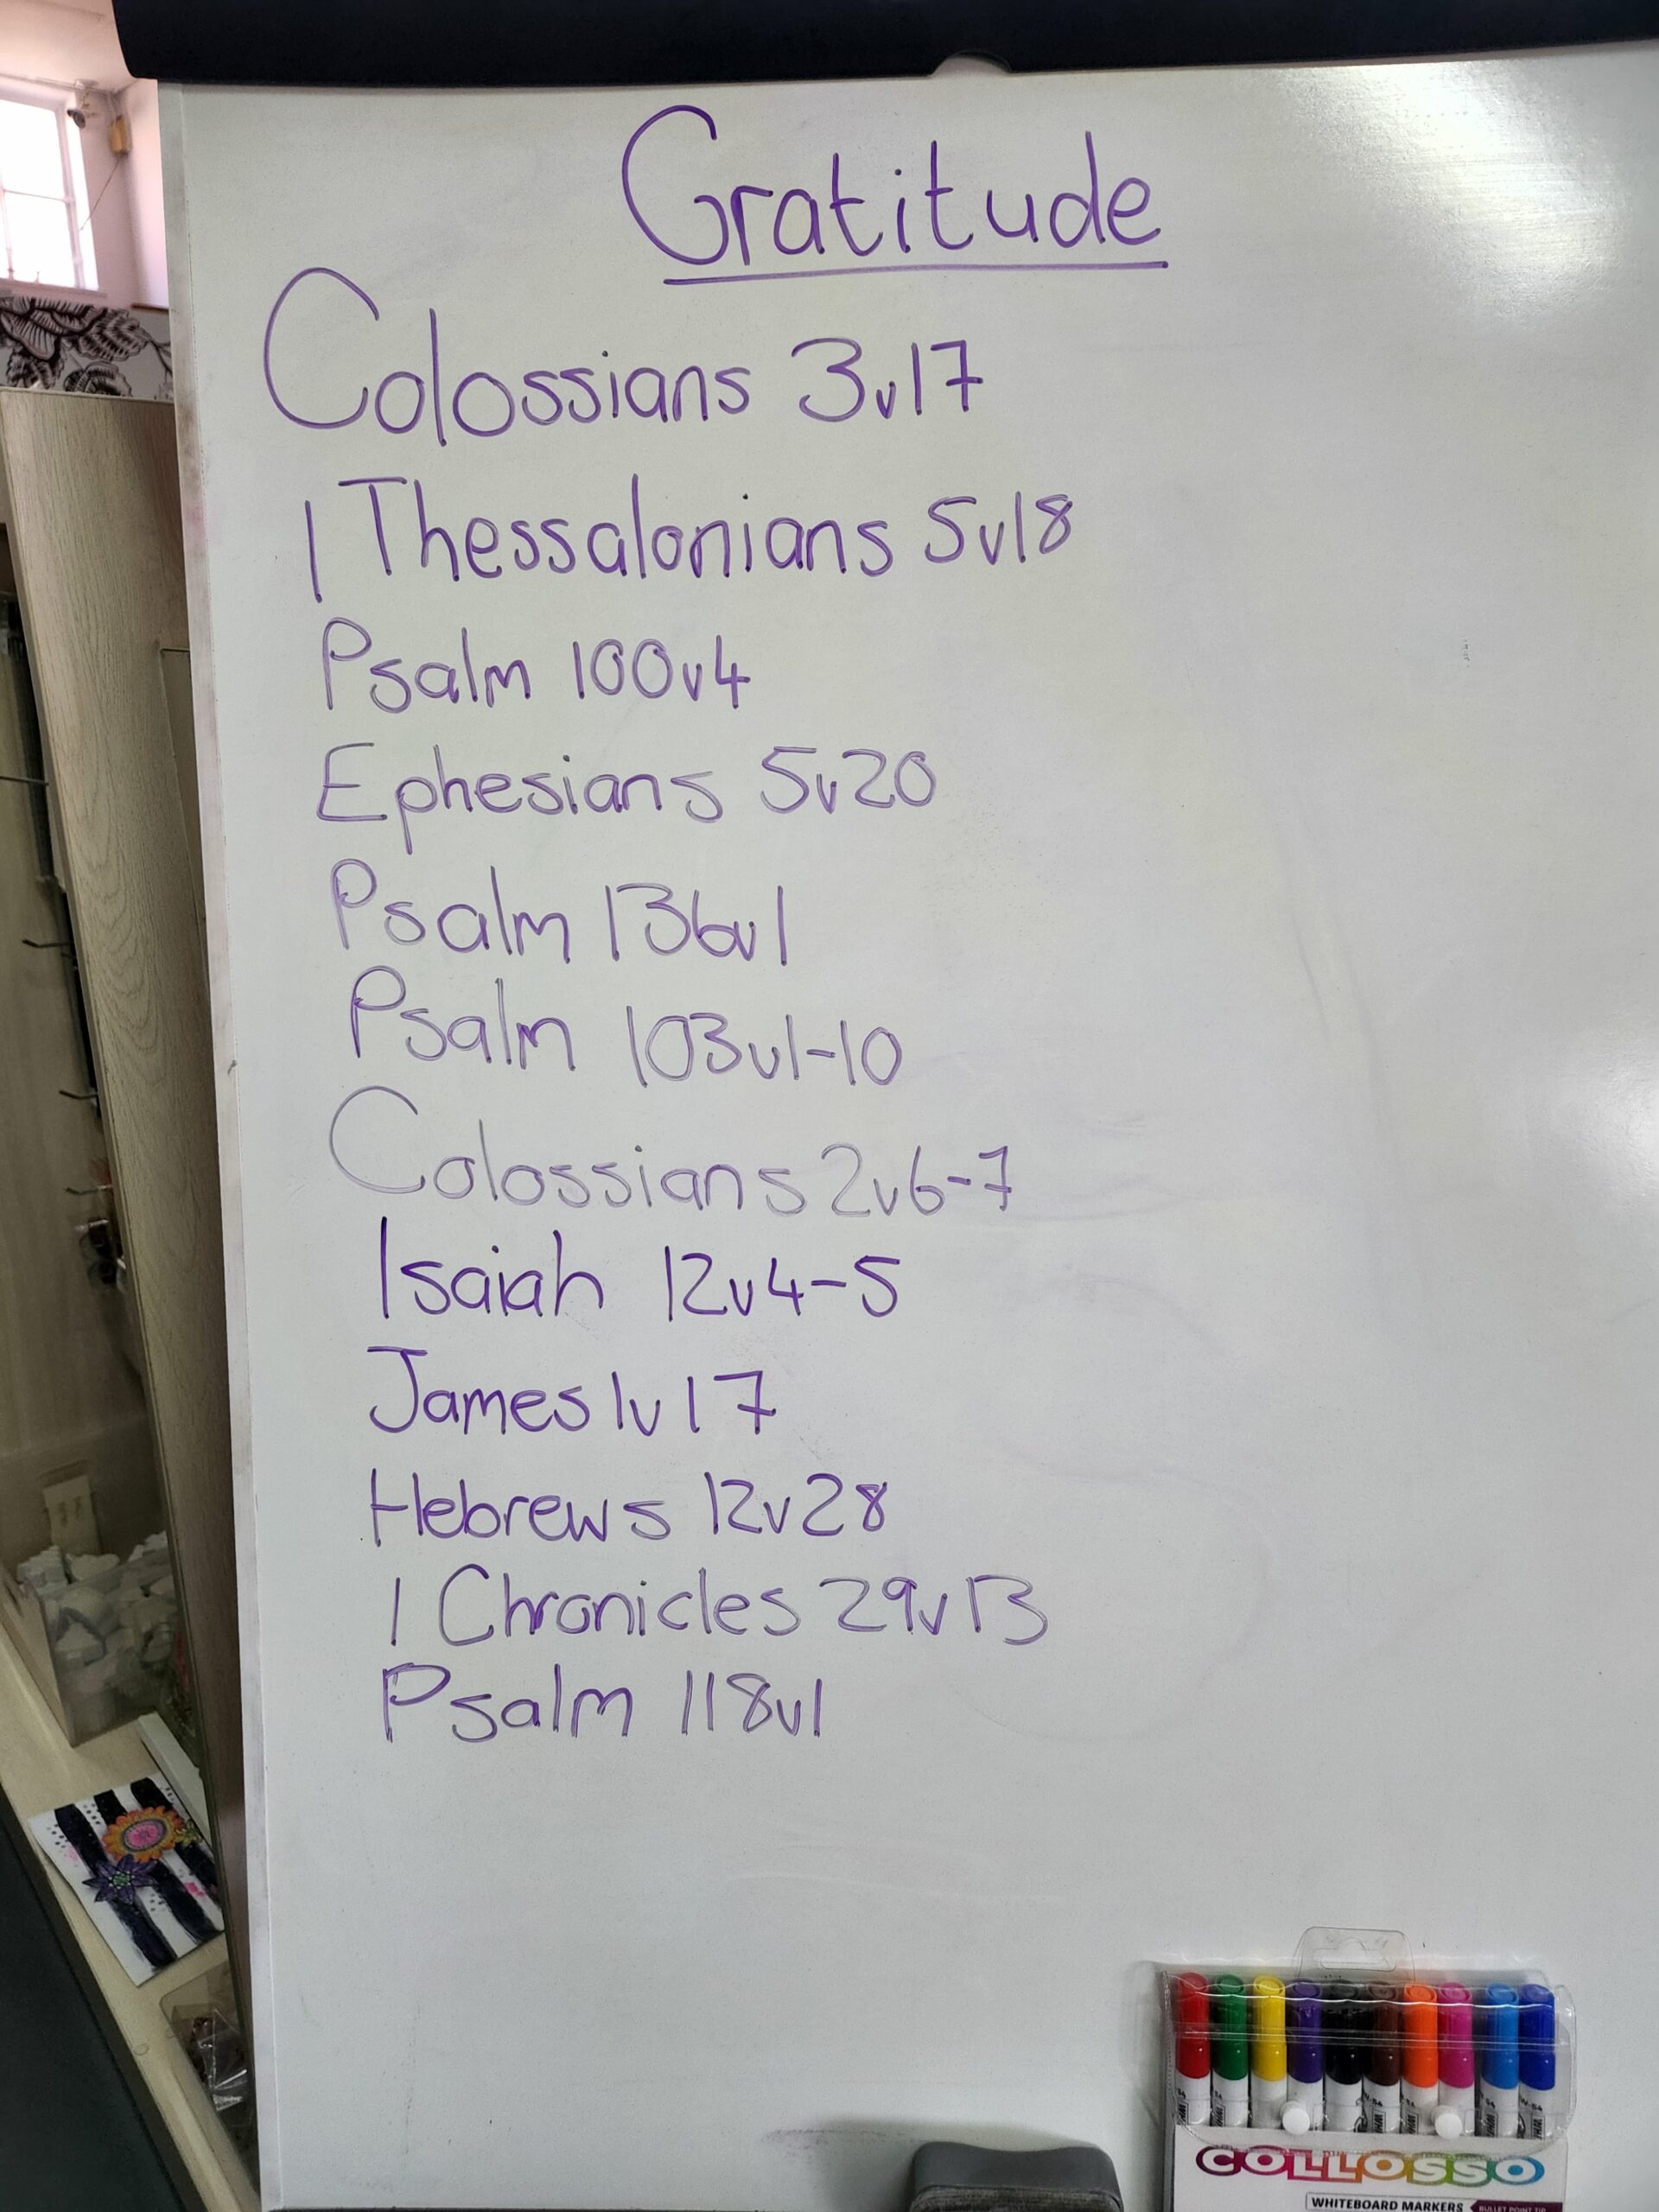 Gratitude
Colossians 3v17
1 Thessalonians 5v18
Psalm 100v4
Ephesians 5v20
Psalm 136v1
Psalm 103v1-10
Colossians 2v6-7
Isaiah 12v4-5
James 1v17
Hebrews 12v28
1 Chronicles 29v13
Psalm 118v1
COLLOSSO
WHITEBOARD MARKERS
BULLET POINT TIP